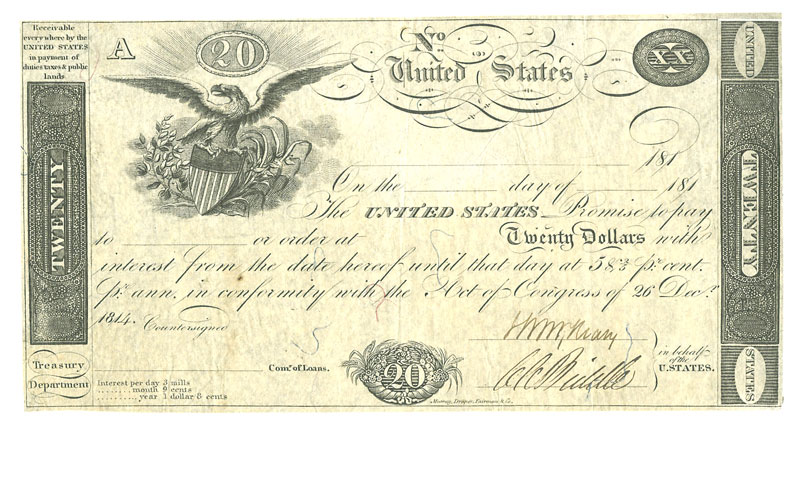 Receivable
every where by the
UNITED STATES
in payment of
duties taxes & public
lands.
A
20
No.
United States
XX
UNITED
TWENTY
TWENTY
181
On the day of 181
The UNITED STATES Promise to pay
to or order at Twenty Dollars with
interest from the date hereof until that day at 5 2/5 pr. cent.
pr. ann. in conformity with the Act of Congress of 26 Decr.
1814. Countersigned
5
C C Biddle
in behalf
of the
U.STATES.
Treasury
Department
Interest per day 3 mills
month 9 cents
year 1 dollar 8 cents
Comr. of Loans.
20
Murray, Draper, Fairman & Co.
STATES